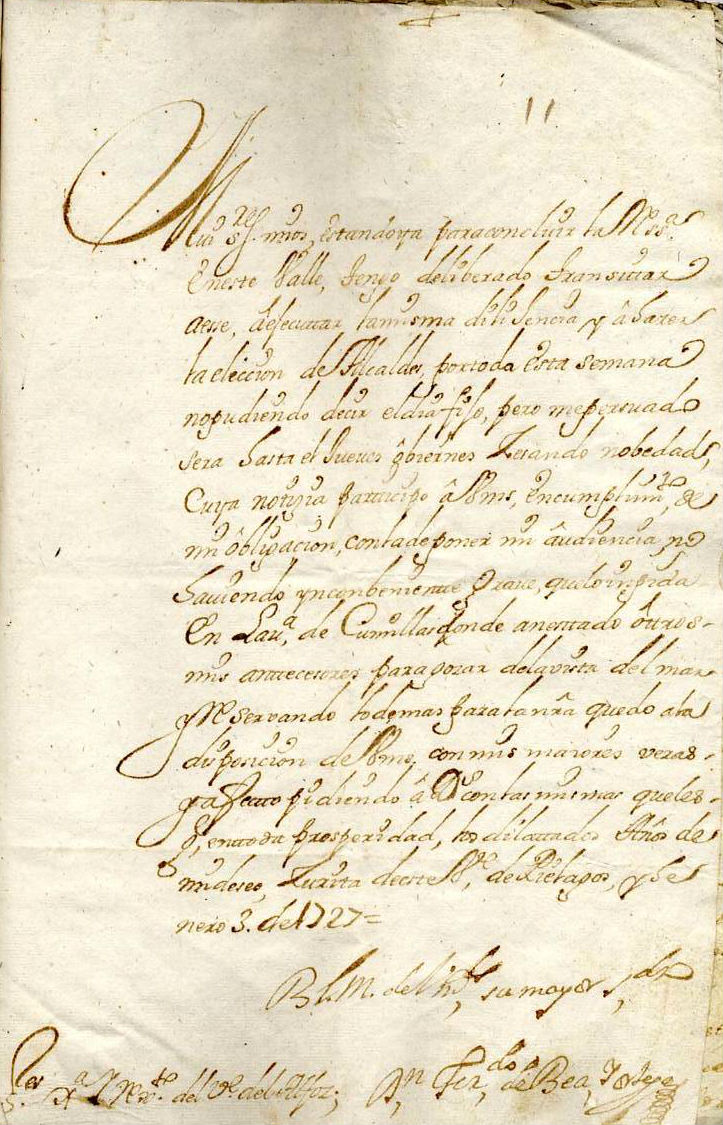 11
Mui s.res mios, estando ya para concluir la
en este Valle, tengo deliberado transitar
a esse, â efecutar la misma dilisencia y â haser
la eleccion de Alcaldes, por toda esta semana
no pudiendo decir el dia fijo, pero me persuado
sera hasta el Jueves ô biernes Zesando nobedad,
Cuya notizia participo â Vms, en cumplim.to de
mi ôbligacion, con la de poner mi âudiencia, no
hauiendo ynconbeniente grave, que lo inpida
En La de Comillas donde an estado ôttros
mis antecesores para gozar de la vista del mar
y Reservando lo demas para la nra quedo a la
disposicion de Vms, con mis maiores veras
y afecto pidiendo â Ds con las mismas que les
g, en toda prosperidad, los dilattados Años de
mi deseo, Zurita de este V.e de Pielagos, y he
nero 3. de 1727=
B.L.M. de Vms su mayor s,dor
S.res X.a y Rex.to del V.e del Alfoz;
D,n Fer,do de Bea,